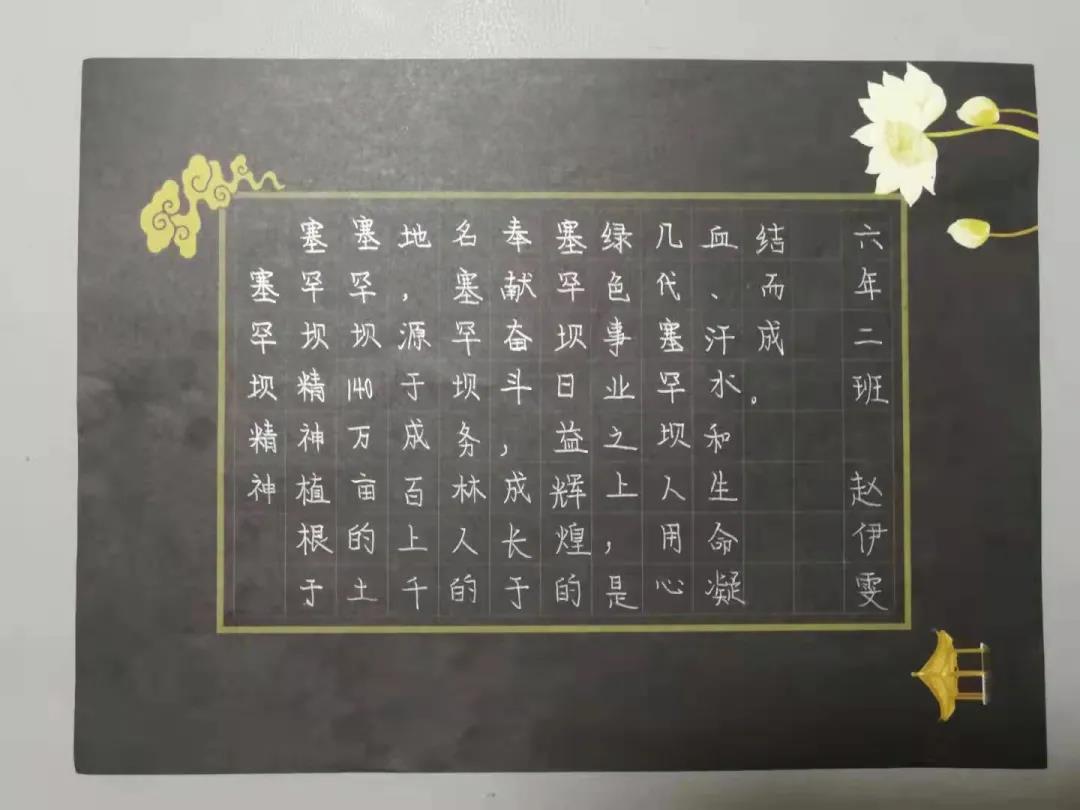 塞罕坝精神
塞罕坝精神植根于
塞罕坝140万亩的土
地，源于成百上千
名塞罕坝务林人的
奉献奋斗，成长于
塞罕坝日益辉煌的
绿色事业之上，是
几代塞罕坝人用心
血、汗水和生命凝
结而成。
六年二班 赵伊雯